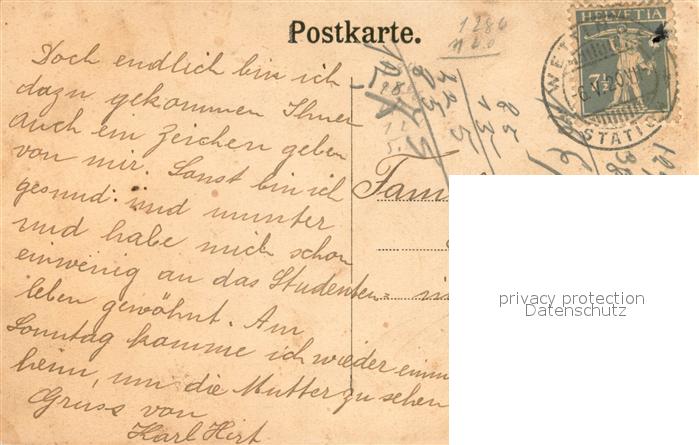 Postkarte.
HELVETIA
7½
WETT
STATIO
1286
Doch endlich bin ich
dazu gekommen Ihnen
auch ein Zeichen geben
von mir. Sonst bin ich
gesund und munter
und habe mich schon
einwenig an das Studenten=
leben gewöhnt. Am
Sonntag komme ich wieder einm
heim, um die Mutter zu sehen
Gruss von
Karl Hirt
Fam
in
privacy protection
Datenschutz